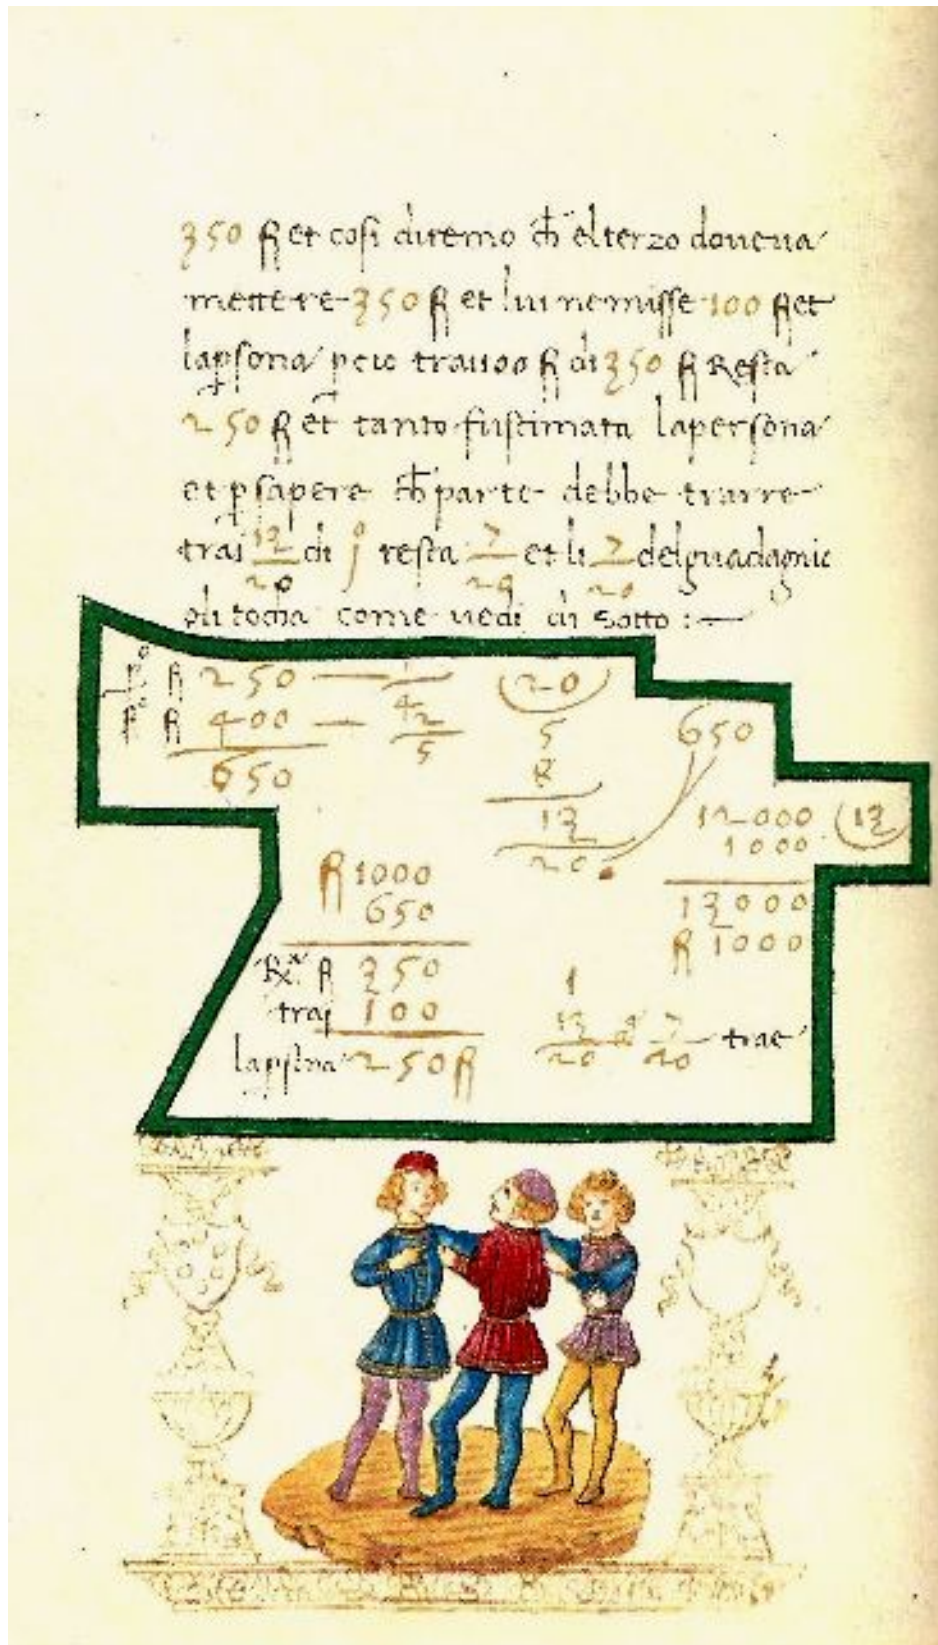 350 ff et cosi diremo ch el terzo doveva
mettere 350 ff et lui ne misse 100 ff et
la psona pciò trai 100 ff di 350 ff Resta
250 ff et tanto fu stimata la persona
et p sapere ch parte debbe trarre
trai 13/20 di 1 resta 7/20 et li 7/20 del guadagnio
gli tocha come vedi di sotto :—
p° ff 250 — 1/4 (20)
p° ff 400 — 2/5 5 650
650 8
13 12000 (13
20 1000
ff 1000 13000
650 ff 1000
Rx ff 350
trai 100 1
la psona 250 ff 13/20 7/20 trae